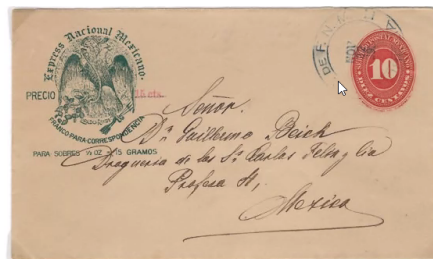 Express Nacional Mexicano.
PRECIO 15 cts.
FRANCO PARA CORRESPONDENCIA
PARA SOBRES ½ OZ - 15 GRAMOS
10
DIEZ CENTAVOS
NOV
Señor.
Dn Guillermo
Drogueria de los Srs Carlos Felix y Cia
Profesa
Mexico